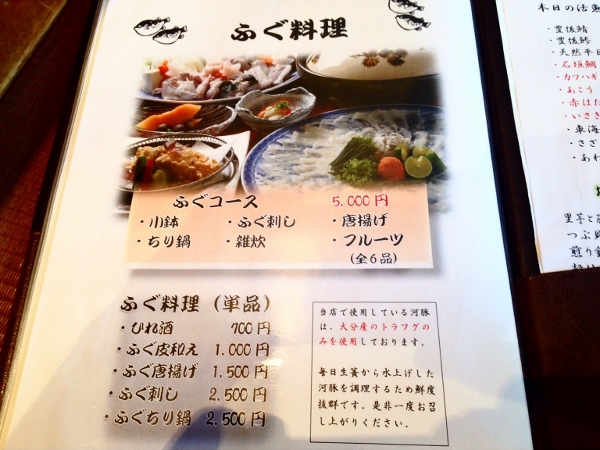 ふぐ料理
ふぐコース 5.000円
・小鉢 ・ふぐ刺し ・唐揚げ
・ちり鍋 ・雑炊 ・フルーツ
(全6品)
ふぐ料理(単品)
・ひれ酒 700円
・ふぐ皮和え 1.000円
・ふぐ唐揚げ 1.500円
・ふぐ刺し 2.500円
・ふぐちり鍋 2.500円
当店で使用している河豚
は、大分産のトラフグの
みを使用しております。
毎日生簀から水上げした
河豚を調理するため鮮度
抜群です。是非一度お召
し上がりください。
本日の活魚
・豊後鯖
・豊後鯵
・天然平目
・石垣鯛
・カワハギ
・あこう
・赤はた
・いさき
・車海
・さざ
・あわ
里芋と
つぶ貝
煎り銀